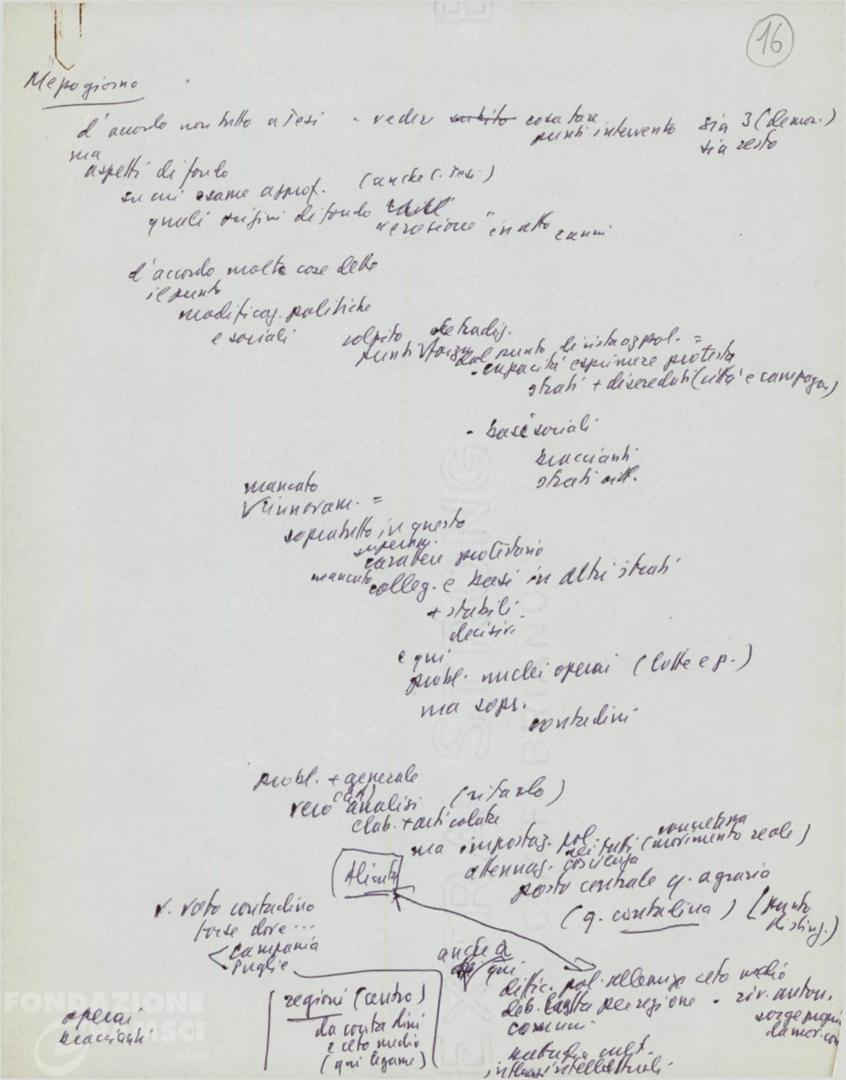 16
Mezzogiorno
d'accordo non tutto a Tesi - veder subito cosa fare
punti intervento sia 3 (democr.)
sia resto
ma
aspetti di fondo
su cui esame approf. (anche C. Tesi)
quali origini di fondo
"erosione" in atto anni
d'accordo molte cose dette
il punto
modificaz. politiche
e sociali colpito
punti forza dal punto di vista pol. =
- capacità esprimere protesta
strati + diseredati (città e campagna)
- basi sociali
braccianti
strati citt.
mancato
rinnovam. =
sopratutto in questo
superam.
carattere protestario
mancato colleg. e basi in altri strati
+ stabili
decisivi
e qui
probl. nuclei operai (lotte e p.)
ma sopr.
contadini
probl. + generale
vero analisi (rifarlo)
elab. + articolate
ma impostaz. pol. concretezza
attenuaz. coscienza (movimento reale)
posto centrale q. agraria
(q. contadina) (punto
disting.)
Alicata
v. voto contadino
forse dove ...
Campania
Puglie
anche a
qui
regioni (centro)
da contadini
e ceto medio
(qui legame)
diffic. pol. alleanze ceto medio
lotta per regione - riv. auton.
comuni
operai
braccianti
FONDAZIONE
GRAMSCI
onlus
EXTRA STRONG
FABRIANO